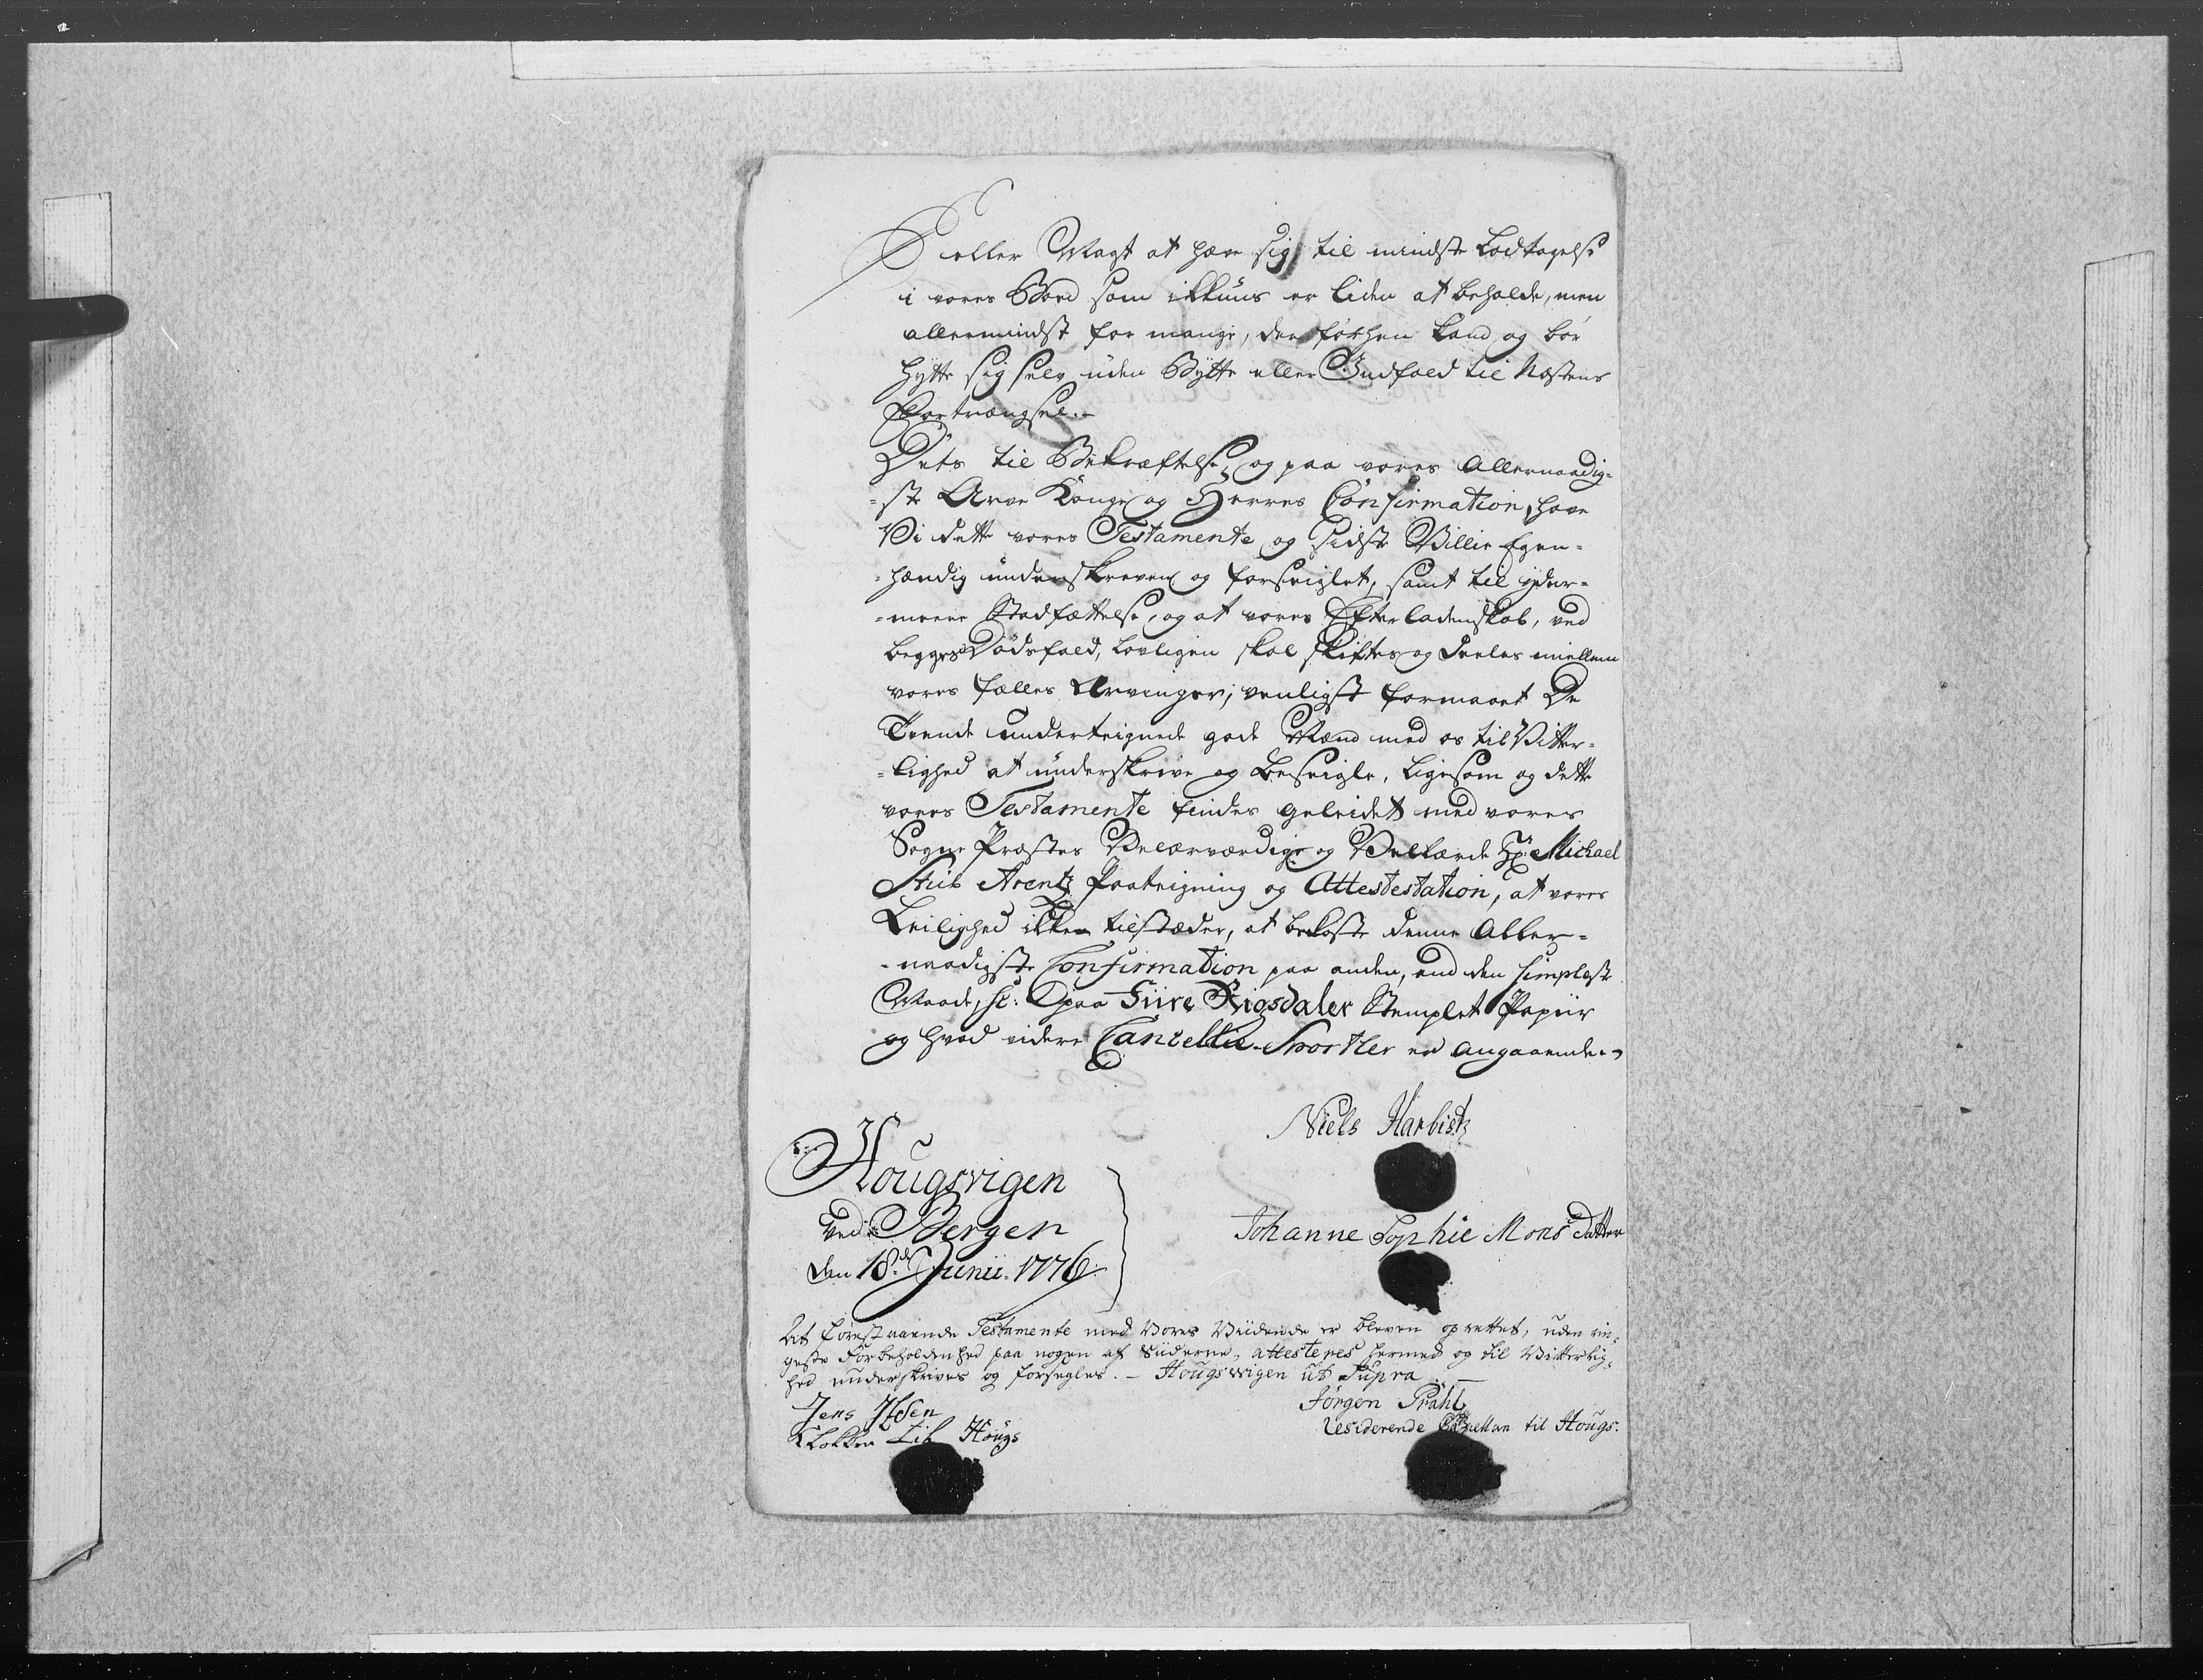 eller Magt at hæve sig til mindste Lodtagelse
i vores Boed som ikkuns er liden at beholde, men
allermindst for mange, der forhen kand og bør
hytte sig selv uden Bytte eller Indfald til Næstens
Fortrængsel.-
Dets til Bekræftelse, og paa vores Allernaadig-
=ste Arve Konge og Herres Confirmation, have
Vi dette vores Testamente og sidste Villie Egen-
=hændig underskreven og forseiglet, samt til yder-
=meere Stadfættelse, og at vores Efterladenskab, ved
begges Dødsfald, lovligen skal skiftes og deeles mellem
vores fælles Arvinger; venligst formaaet De
Tvende undertegnede gode Mænd med os til Vitter-
=lighed at underskrive og besegle, ligesom og dette
vores Testamente findes geleidet med vores
Sogne Præstes Velærværdige og Vellærde Hr. Michael
Stub Arentz Paategning og Attestestation, at vores
Leilighed ikke tilstæder, at bekoste denne Aller-
-naadigste Confirmation paa anden, end den simpleste
Maade, sc: paa Fiire Rigsdaler Stemplet Papiir
og hvad videre Cancellie-Sportler er angaaende.
Niels Harbistz
Hougsvigen
ved Bergen
den 18de Junii 1776.
Johanne Sophie Mons datter
At forestaaende Testamente med Vores Vidende er bleven oprettet, uden rin-
geste Forbeholdenhed paa nogen af Siiderne, attesteres hermed og til Vitterlig-
hed underskrives og forsegles. - Hougsvigen ut Supra
Jens Ibsen
Klokker til Hougs
Jørgen Prahl
Residerende Capellan til Hougs.